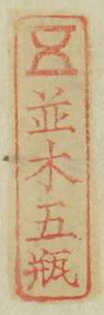 並木五瓶